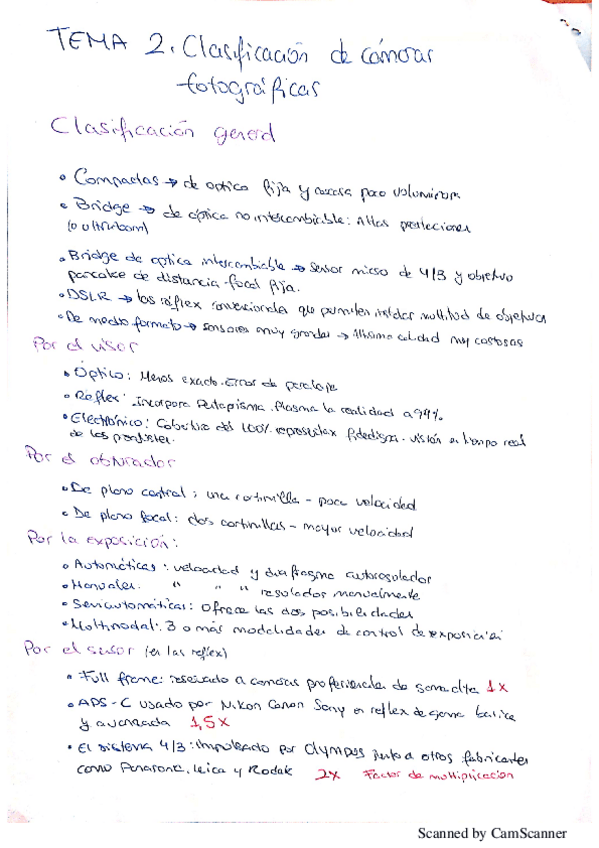 TEMA 2. Clasificación de cámaras
fotográficas
Clasificación general
• Compactas → de optica fija y carcasa poco voluminosa
• Bridge → de óptica no intercambiable: Altas prestaciones
(o ultrazoom)
• Bridge de optica intercambiable → sensor micro de 4/3 y objetivo
pancake de distancia focal fija.
• DSLR → las réflex convencionales que permiten instalar multitud de objetivos
• De medio formato → sensores muy grandes → Altísima calidad muy costosas
Por el visor
• Óptico: Menos exacto. Error de paralaje
• Réflex: Incorpora Pentaprisma. Plasma la realidad a 99%
• Electrónico: Cobertura del 100% representax fidedigna. visión en tiempo real
de los
Por el obturador
• De plano central: una cortinilla - poca velocidad
• De plano focal: dos cortinillas - mayor velocidad
Por la exposición:
• Automáticas: velocidad y diafragma autoregulador
• Manuales: " " " regulados manualmente
• Semiautomáticas: Ofrece las dos posibilidades
• Multimodal: 3 o más modalidades de control de exposición
Por el sensor (en las reflex)
• Full frame: reservado a cámaras profesionales de gama alta 1x
• APS-C usado por Nikon Canon Sony en reflex de gama basica
y avanzada 1,5x
• El sistema 4/3: impulsado por Olympus junto a otros fabricantes
como Panasonic, Leica y Kodak 2x Factor de multiplicacion
Scanned by CamScanner